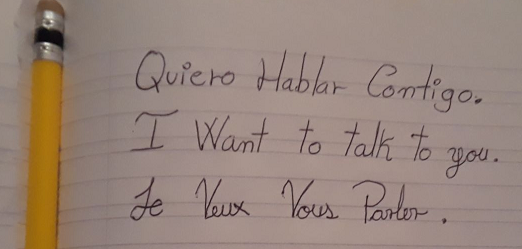 Quiero Hablar Contigo.
I Want to talk to you.
Je Veux Vous Parler.